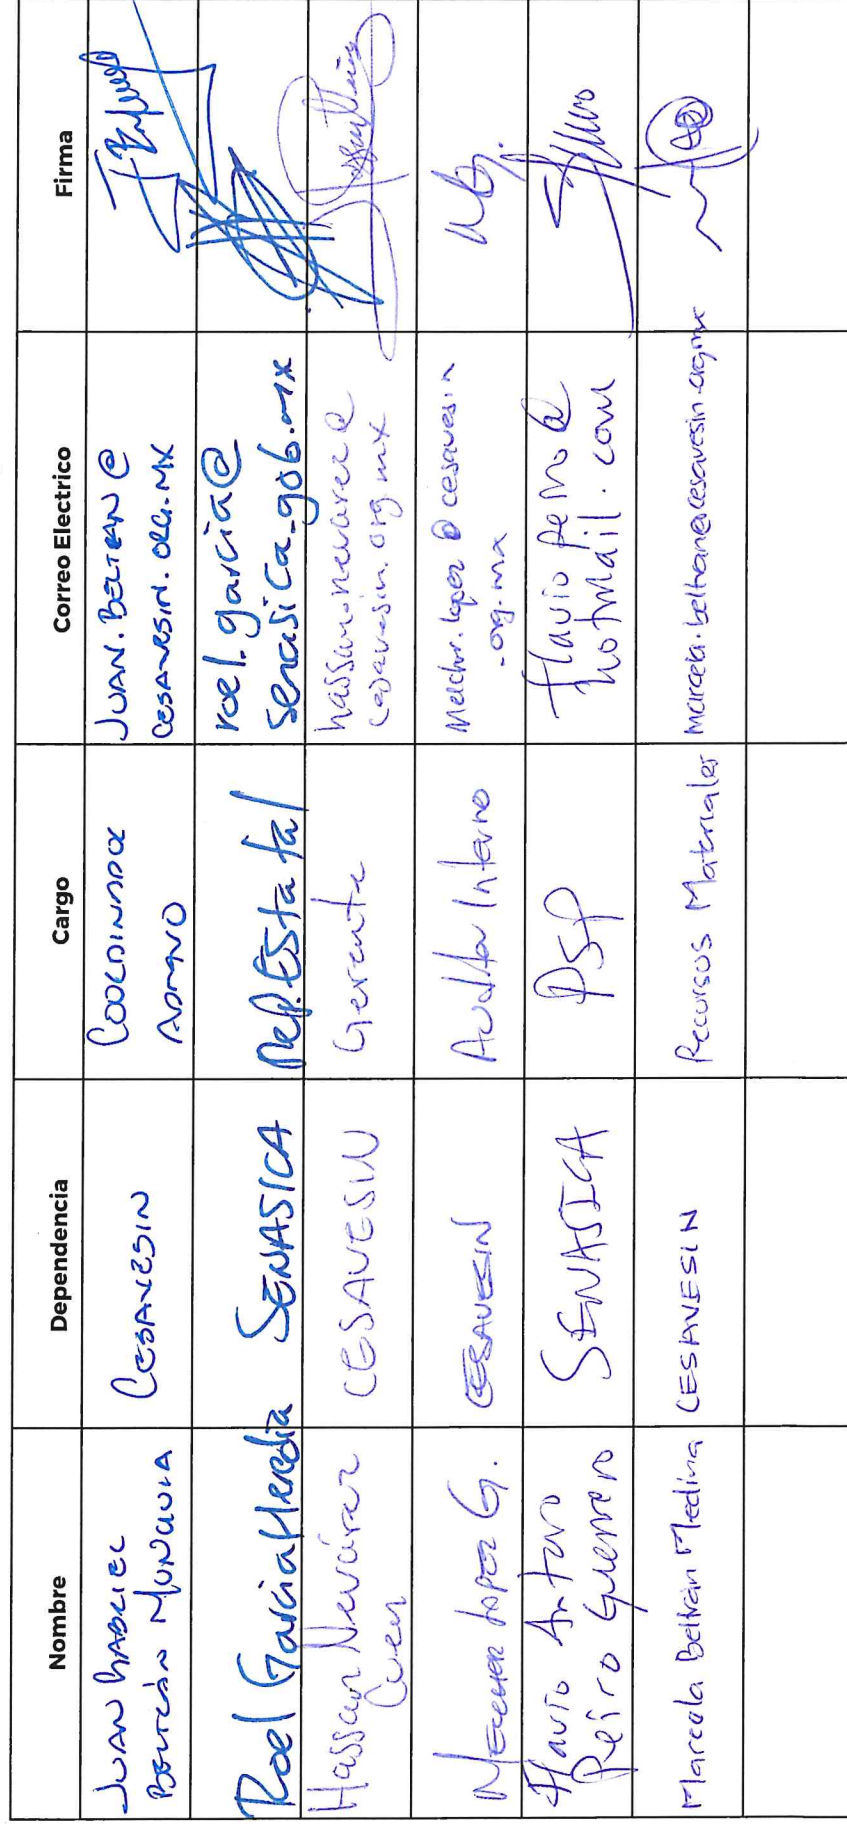 Nombre Dependencia Cargo Correo Electrico Firma
JUAN GABRIEL
BELTRÁN MONCAVIA
CESAVESIN
COORDINADOR
ADMVO
JUAN.BELTRAN@
CESAVESIN.ORG.MX
Roel García Heredia
SENASICA
Rep. Estatal
roel.garcia@
senasica.gob.mx
Hassan Nevárez
CESAVESIN
Gerente
hassan.nevarez@
cesavesin.org.mx
MELCHOR LOPEZ G.
CESAVESIN
Auditor Interno
Melchor.lopez@cesavesin
.org.mx
Flavio Antaro
Peiro Guerrero
SENASICA
PSP
flaviopeiro@
hotmail.com
Marcela Beltrán Medina
CESAVESIN
Recursos Materiales
marcela.beltran@cesavesin.org.mx